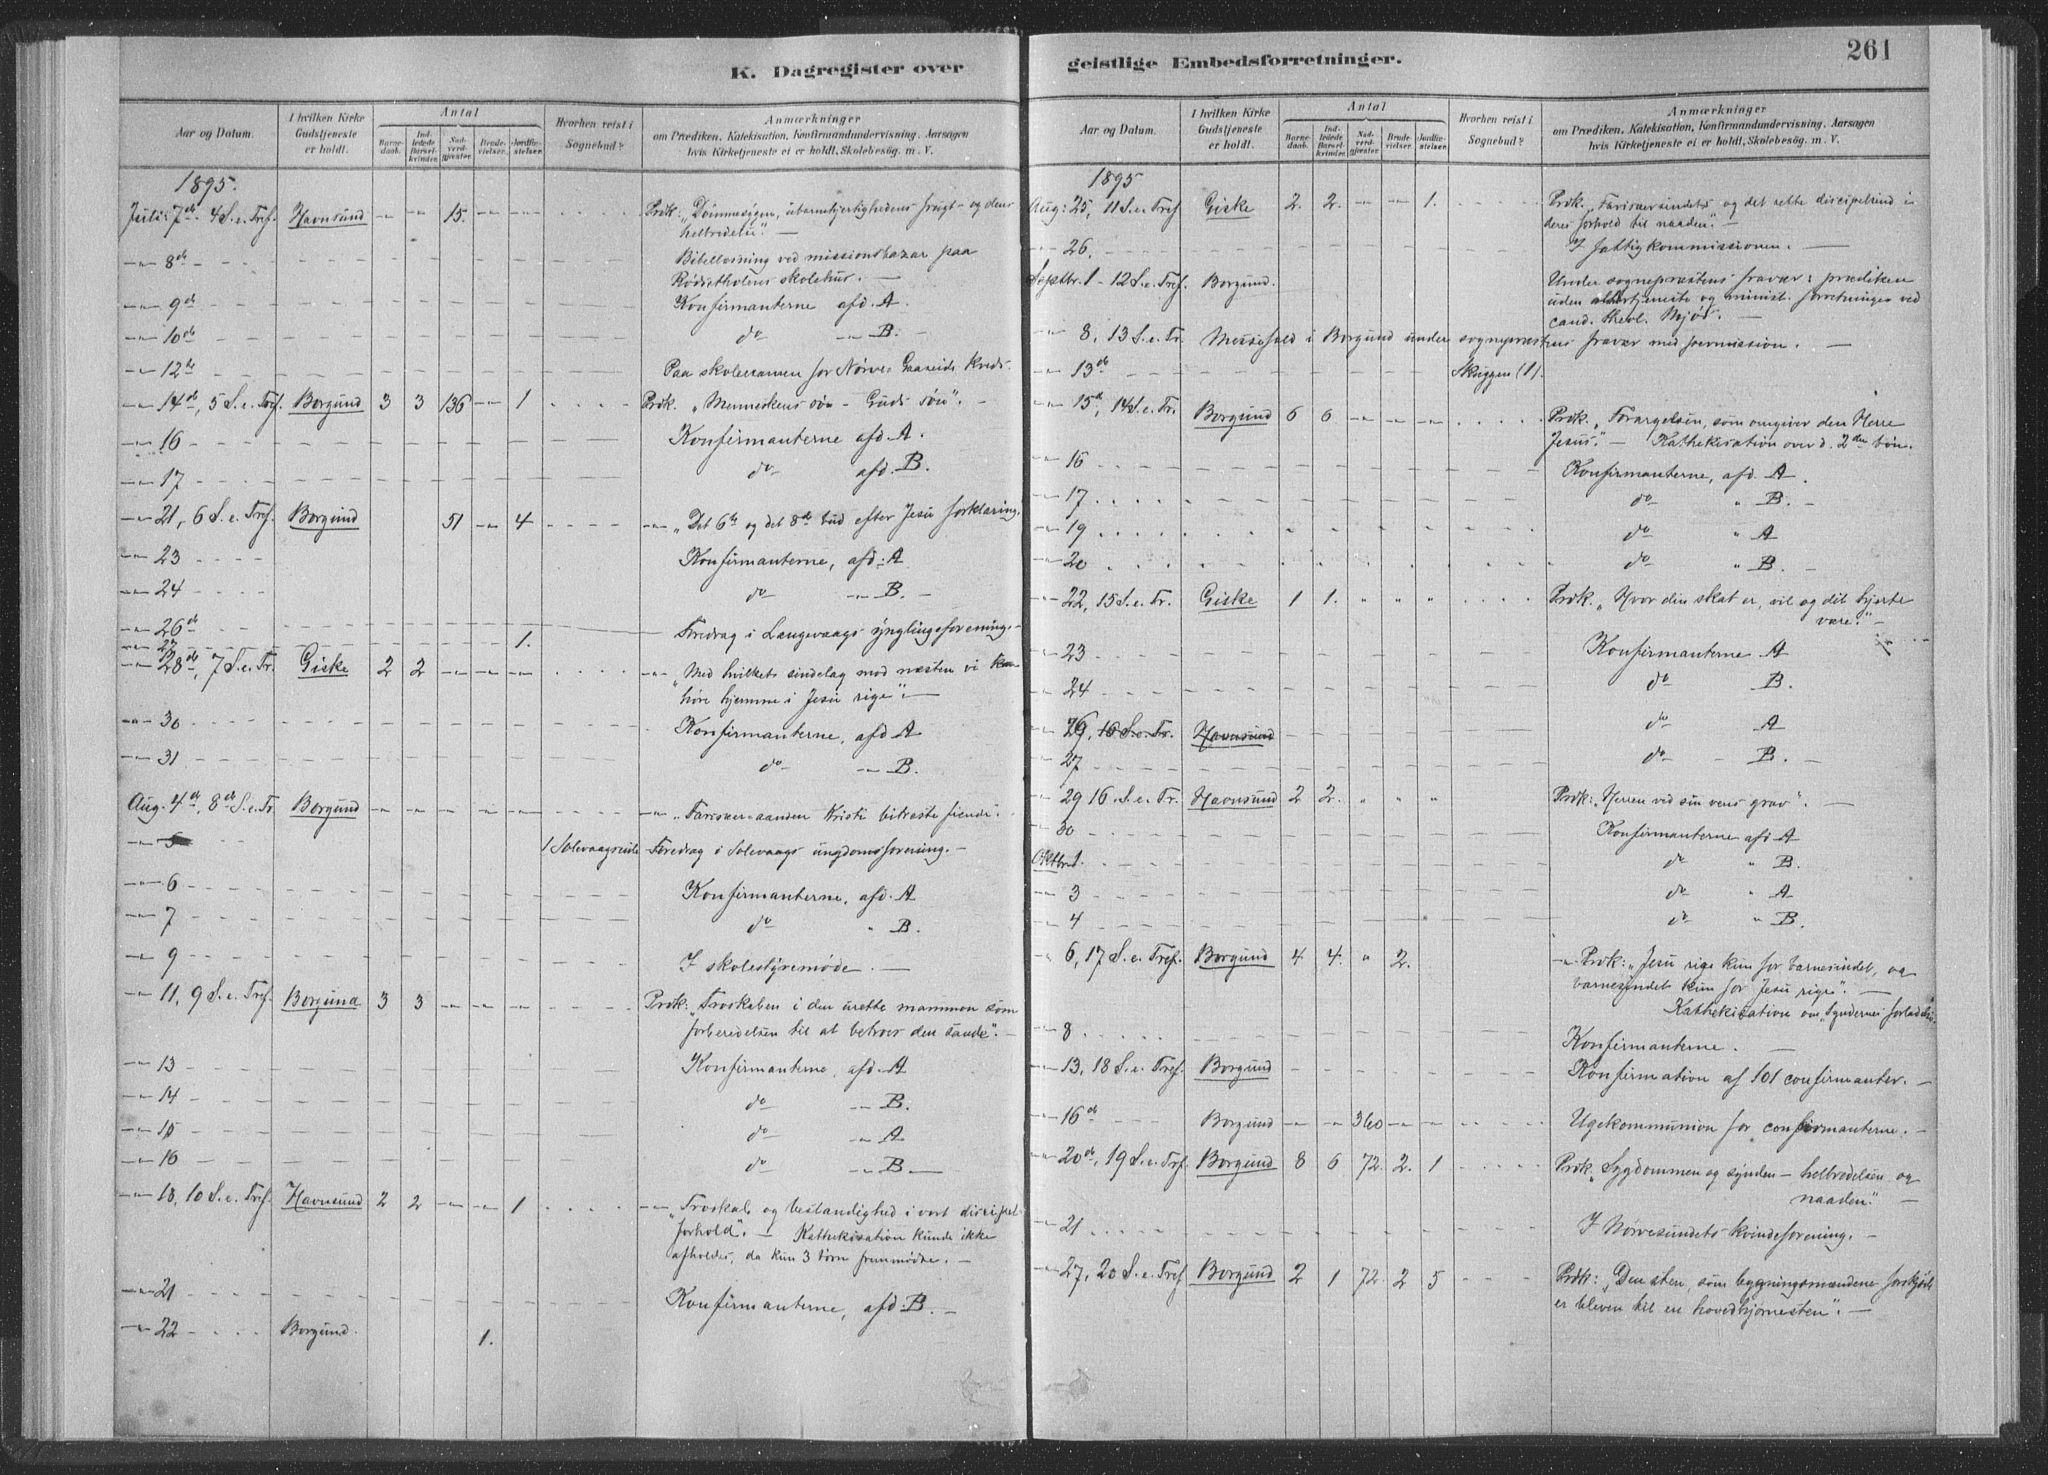 K. Dagregister over
Aar og Datum.
I hvilken Kirke Gudstjeneste er holdt.
Antal
Barnedaab.
Indledede Barselkvinder.
Nadverdgjester.
Brudevielser.
Jordfæstelser.
Hvorhen reist i Sognebud?
Anmærkninger
om Prædiken, Katekisation, Konfirmandundervisning, Aarsagen
hvis Kirketjeneste ei er holdt, Skolebesøg. m. V.
1895.
Juli: 7de 4 S. e. Tref. Havnsund -"- -"- 15. -"- -"- Prdk: „Dømmesygen, ubarmhjertighedens frugt - og dens
helbredelse". -
-"- 8de Bibellæsning ved missionsbazar paa
skolehus. -
-"- 9de Konfirmanterne afd. A.
-"- 10de do -"- B. -
-"- 12te Paa skoleexamen for Nørve Gaaseide Kreds.
-"- 14de, 5 S. e. Tref. Borgund 3 3 136 -"- 1 Prdk. „Menneskens søn - Guds søn". -
-"- 16 Konfirmanterne afd. A.
-"- 17 do afd. B.
-"- 21, 6 S. e. Tref. Borgund 51 -"- 4 -"- „Det 6te og det 8de bud efter Jesu forklaring.
-"- 23 Konfirmanterne, afd: A
-"- 24 do -"- B. -
-"- 26de Foredrag i Langevaags ynglingeforening. -
-"- 27 1.
-"- 28de, 7 S. e. Tr. Giske 2 2 -"- -"- -"- -"- „Med hvilket sindelag mod næsten vi kan
høre hjemme i Jesu rige". -
-"- 30 Konfirmanterne, afd A
-"- 31 do -"- B.
Aug. 4de, 8de S. e. Tr. Borgund -"- -"- -"- -"- -"- -"- „Farisæer-aanden Kristi bitreste fiende".
-"- 5 1 Solevaagseide Foredrag i Solevaags ungdomsforening. -
-"- 6 Konfirmanterne, afd. A
-"- 7 do " B.
-"- 9 I skolestyremøde. -
-"- 11, 9 S. e. Tref. Borgund 3 3 -"- -"- -"- Prdk: „Troskaben i den urette mammon som
forberedelsen til at betroes den sande". -
-"- 13 Konfirmanterne, afd. A
-"- 14 do -"- B.
-"- 15 do -"- A
-"- 16 do -"- B. -
-"- 18, 10 S. e. Tref. Havnsund 2 2 -"- -"- 1 -"- „Troskab og bestandighed i vort discipel-
forhold". - Kathekisation kunde ikke
afholdes, da kun 3 børn fremmødte. -
-"- 21 Konfirmanterne, afd: B. -
-"- 22 Borgund. 1.
geistlige Embedsforretninger.
261
Aar og Datum.
I hvilken Kirke Gudstjeneste er holdt.
Antal
Barnedaab.
Indledede Barselkvinder.
Nadverdgjester.
Brudevielser.
Jordfæstelser.
Hvorhen reist i Sognebud?
Anmærkninger
om Prædiken, Katekisation, Konfirmandundervisning, Aarsagen
hvis Kirketjeneste ei er holdt, Skolebesøg. m. V.
1895
Aug: 25, 11 S. e. Tref Giske 2. 2. -"- -"- 1. Prdk. „Farisæersindets og det rette discipelsind i
deres forhold til naaden". -
-"- 26. I fattigkommissionen. -
Septbr. 1 - 12 S. e. Tref. Borgund. Under sognepræstens fravær: prædiken
uden altertjeneste og minist. forretninger ved
cand. theol. Mjød. -
-"- 8, 13 S. e. Tr. Messefald i Borgund under sognepræstens fravær med permission. -
-"- 13de Skuggen (1).
-"- 15de, 14 S. e. Tr. Borgund 6 6 -"- -"- -"- Prdk. „Forargelsen, som omgiver den Herre
Jesus". - Kathekisation over d. 2den bøn.
-"- 16 Konfirmanterne, afd A.
-"- 17 do " B. -
-"- 19 do " A
-"- 20 do " B. -
-"- 22, 15 S. e. Tr. Giske 1 1. " " " Prdk. „Hvor din skat er, vil og dit hjerte
være." -
-"- 23 Konfirmanterne A
-"- 24 do B.
-"- 26, 16 S. e. Tr. Havnsund do A
-"- 27 do B. -
-"- 29 16. S. e. Tr. Havnsund 2 2. " " " Prdk: „Herren ved sin vens grav". -
-"- 30 Konfirmanterne afd A
Oktbr. 1. do " B.
-"- 3 do " A
-"- 4 do " B.
" 6, 17 S. e. Tref. Borgund 4 4. " 2. -"- Prdk: „Jesu rige kun for barnesindet, og
barnesindet kun for Jesu rige". -
Kathekisation om „Syndernes forladelse.
-"- 8 Konfirmanterne. -
-"- 13, 18 S. e. Tref. Borgund Konfirmation af 101 confirmanter. -
-"- 16de Borgund -"- -"- 360 -"- -"- Ugekommunion for confirmanterne. -
-"- 20de, 19 S. e. Tref. Borgund 8 6 72. 2. 1 Prdk. „Sygdommen og synden - helbredelsen og
naaden". -
-"- 21 I Nørvesundets kvindeforening. -
-"- 27, 20 S. e. Tref Borgund 2 1 72. 2 5 Prdk: „Den sten, som bygningsmændene forskjød,
er bleven til en hovedhjørnesten". -